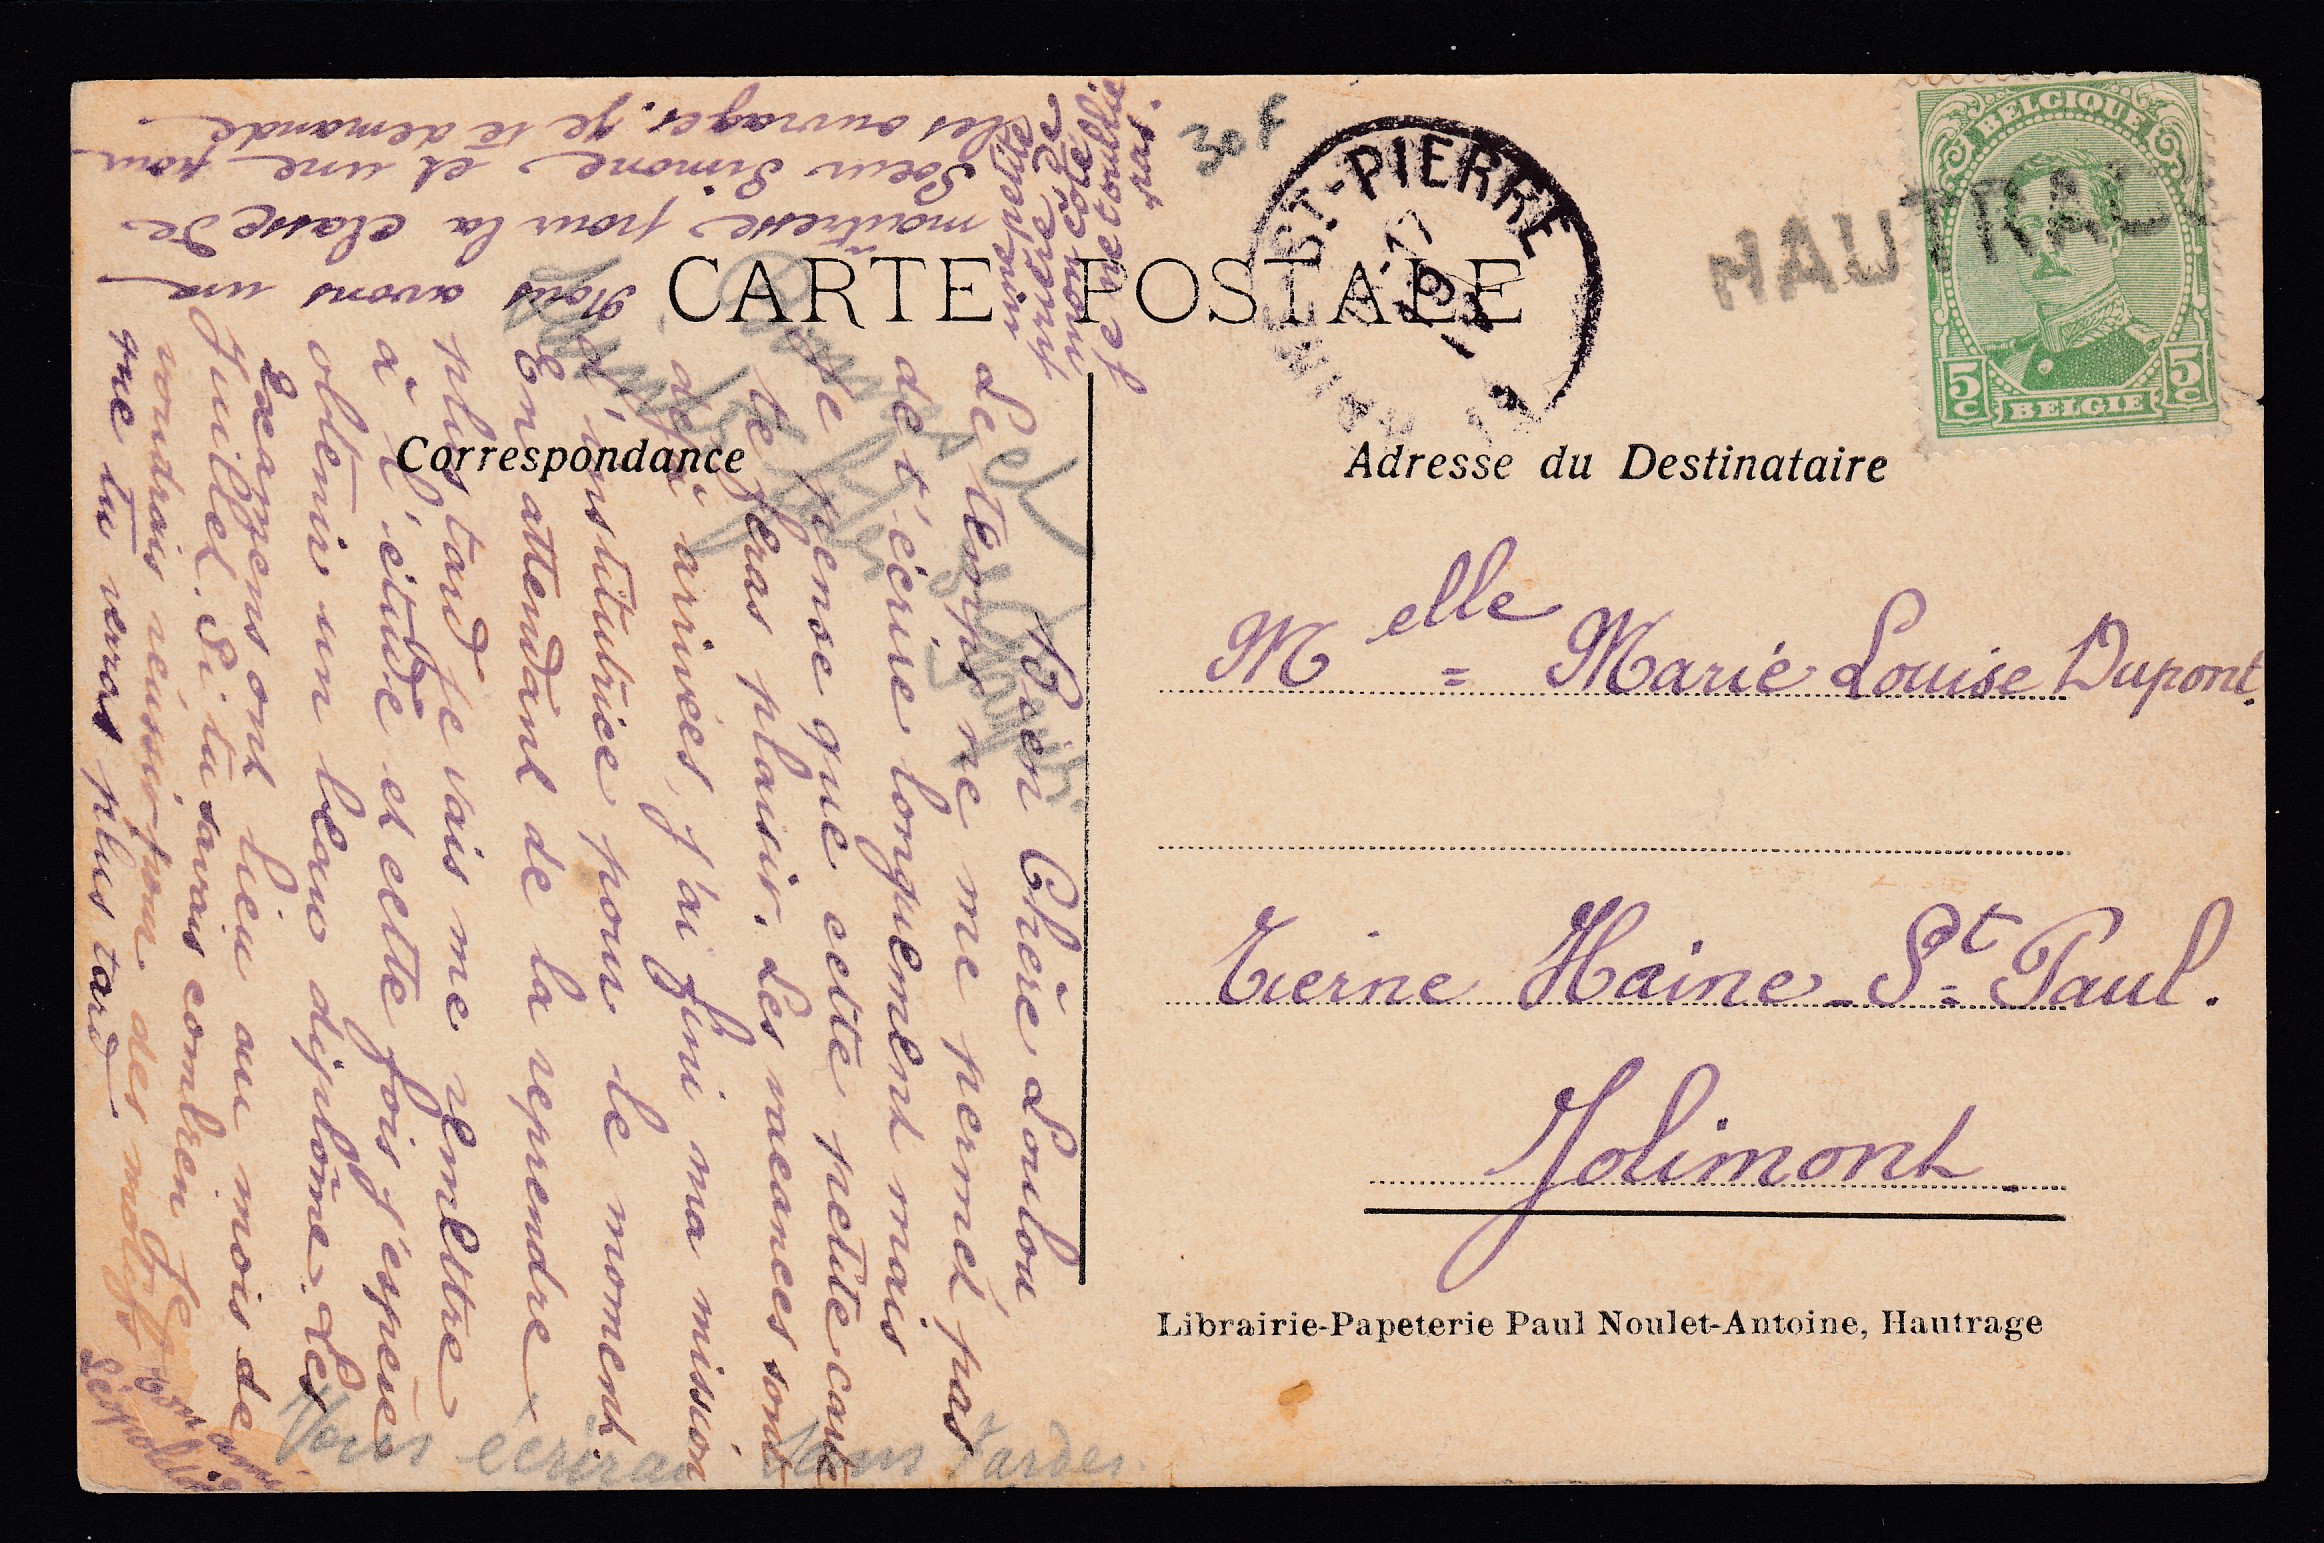 CARTE POSTALE
Correspondance
Adresse du Destinataire
BELGIQUE
5c BELGIE 5c
HAUTRAGE
ST-PIERRE
30 F
Melle Marie Louise Dupont.
Tierne Haine-St Paul.
Jolimont
Librairie-Papeterie Paul Noulet-Antoine, Hautrage
Bien Chère Loulou
Le temps ne me permet pas
de t'écrire longuement mais
je pense que cette petite carte
te feras plaisir. Les vacances sont
déjà arrivées, j'ai fini ma mission
d'institutrice pour le moment.
En attendant de la reprendre
plus tard je vais me remettre
à l'étude et cette fois j'espère
obtenir un beau diplôme. Les
Examens ont lieu au mois de
Juillet. Si tu savais combien je
voudrais réussir pour des motifs
que tu verras plus tard
Nous avons une
maîtresse pour la classe de
Soeur Simone et une pour
les ouvrages. Je te demande
une petite
prière de
ton côté
je ne t'oublie
pas.
Ton amie
Léopoldine
Vous écrirai sans tarder.